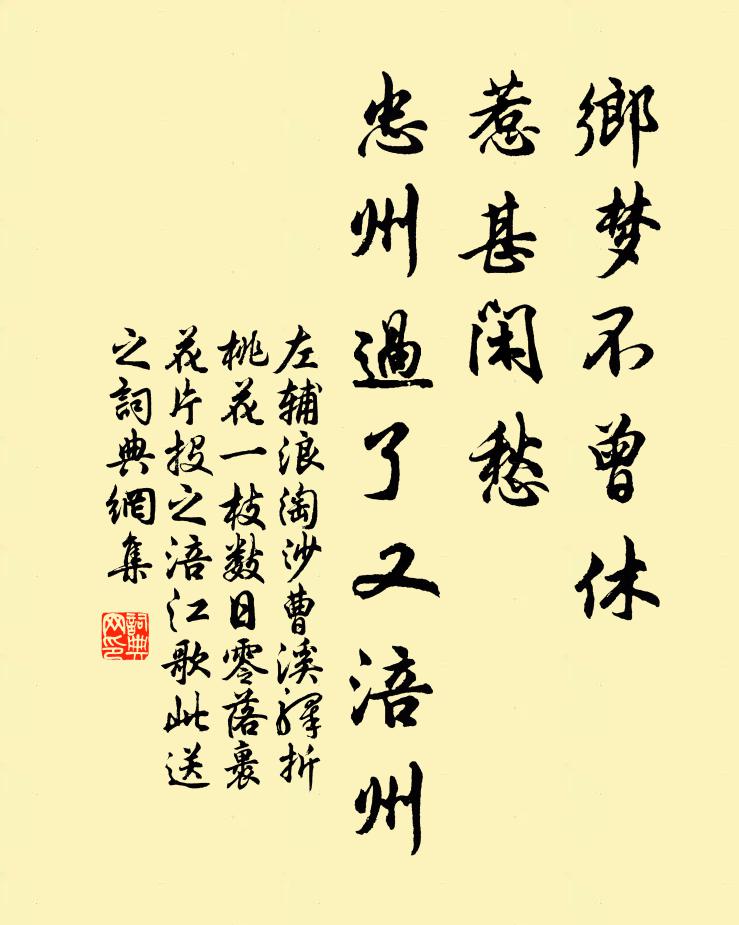 鄉梦不曾休
惹甚閑愁
忠州過了又涪州
左辅浪淘沙曹溪驛折
桃花一枝数日零落裹
花片投之涪江歌此送
之詞典網集
詞典网印